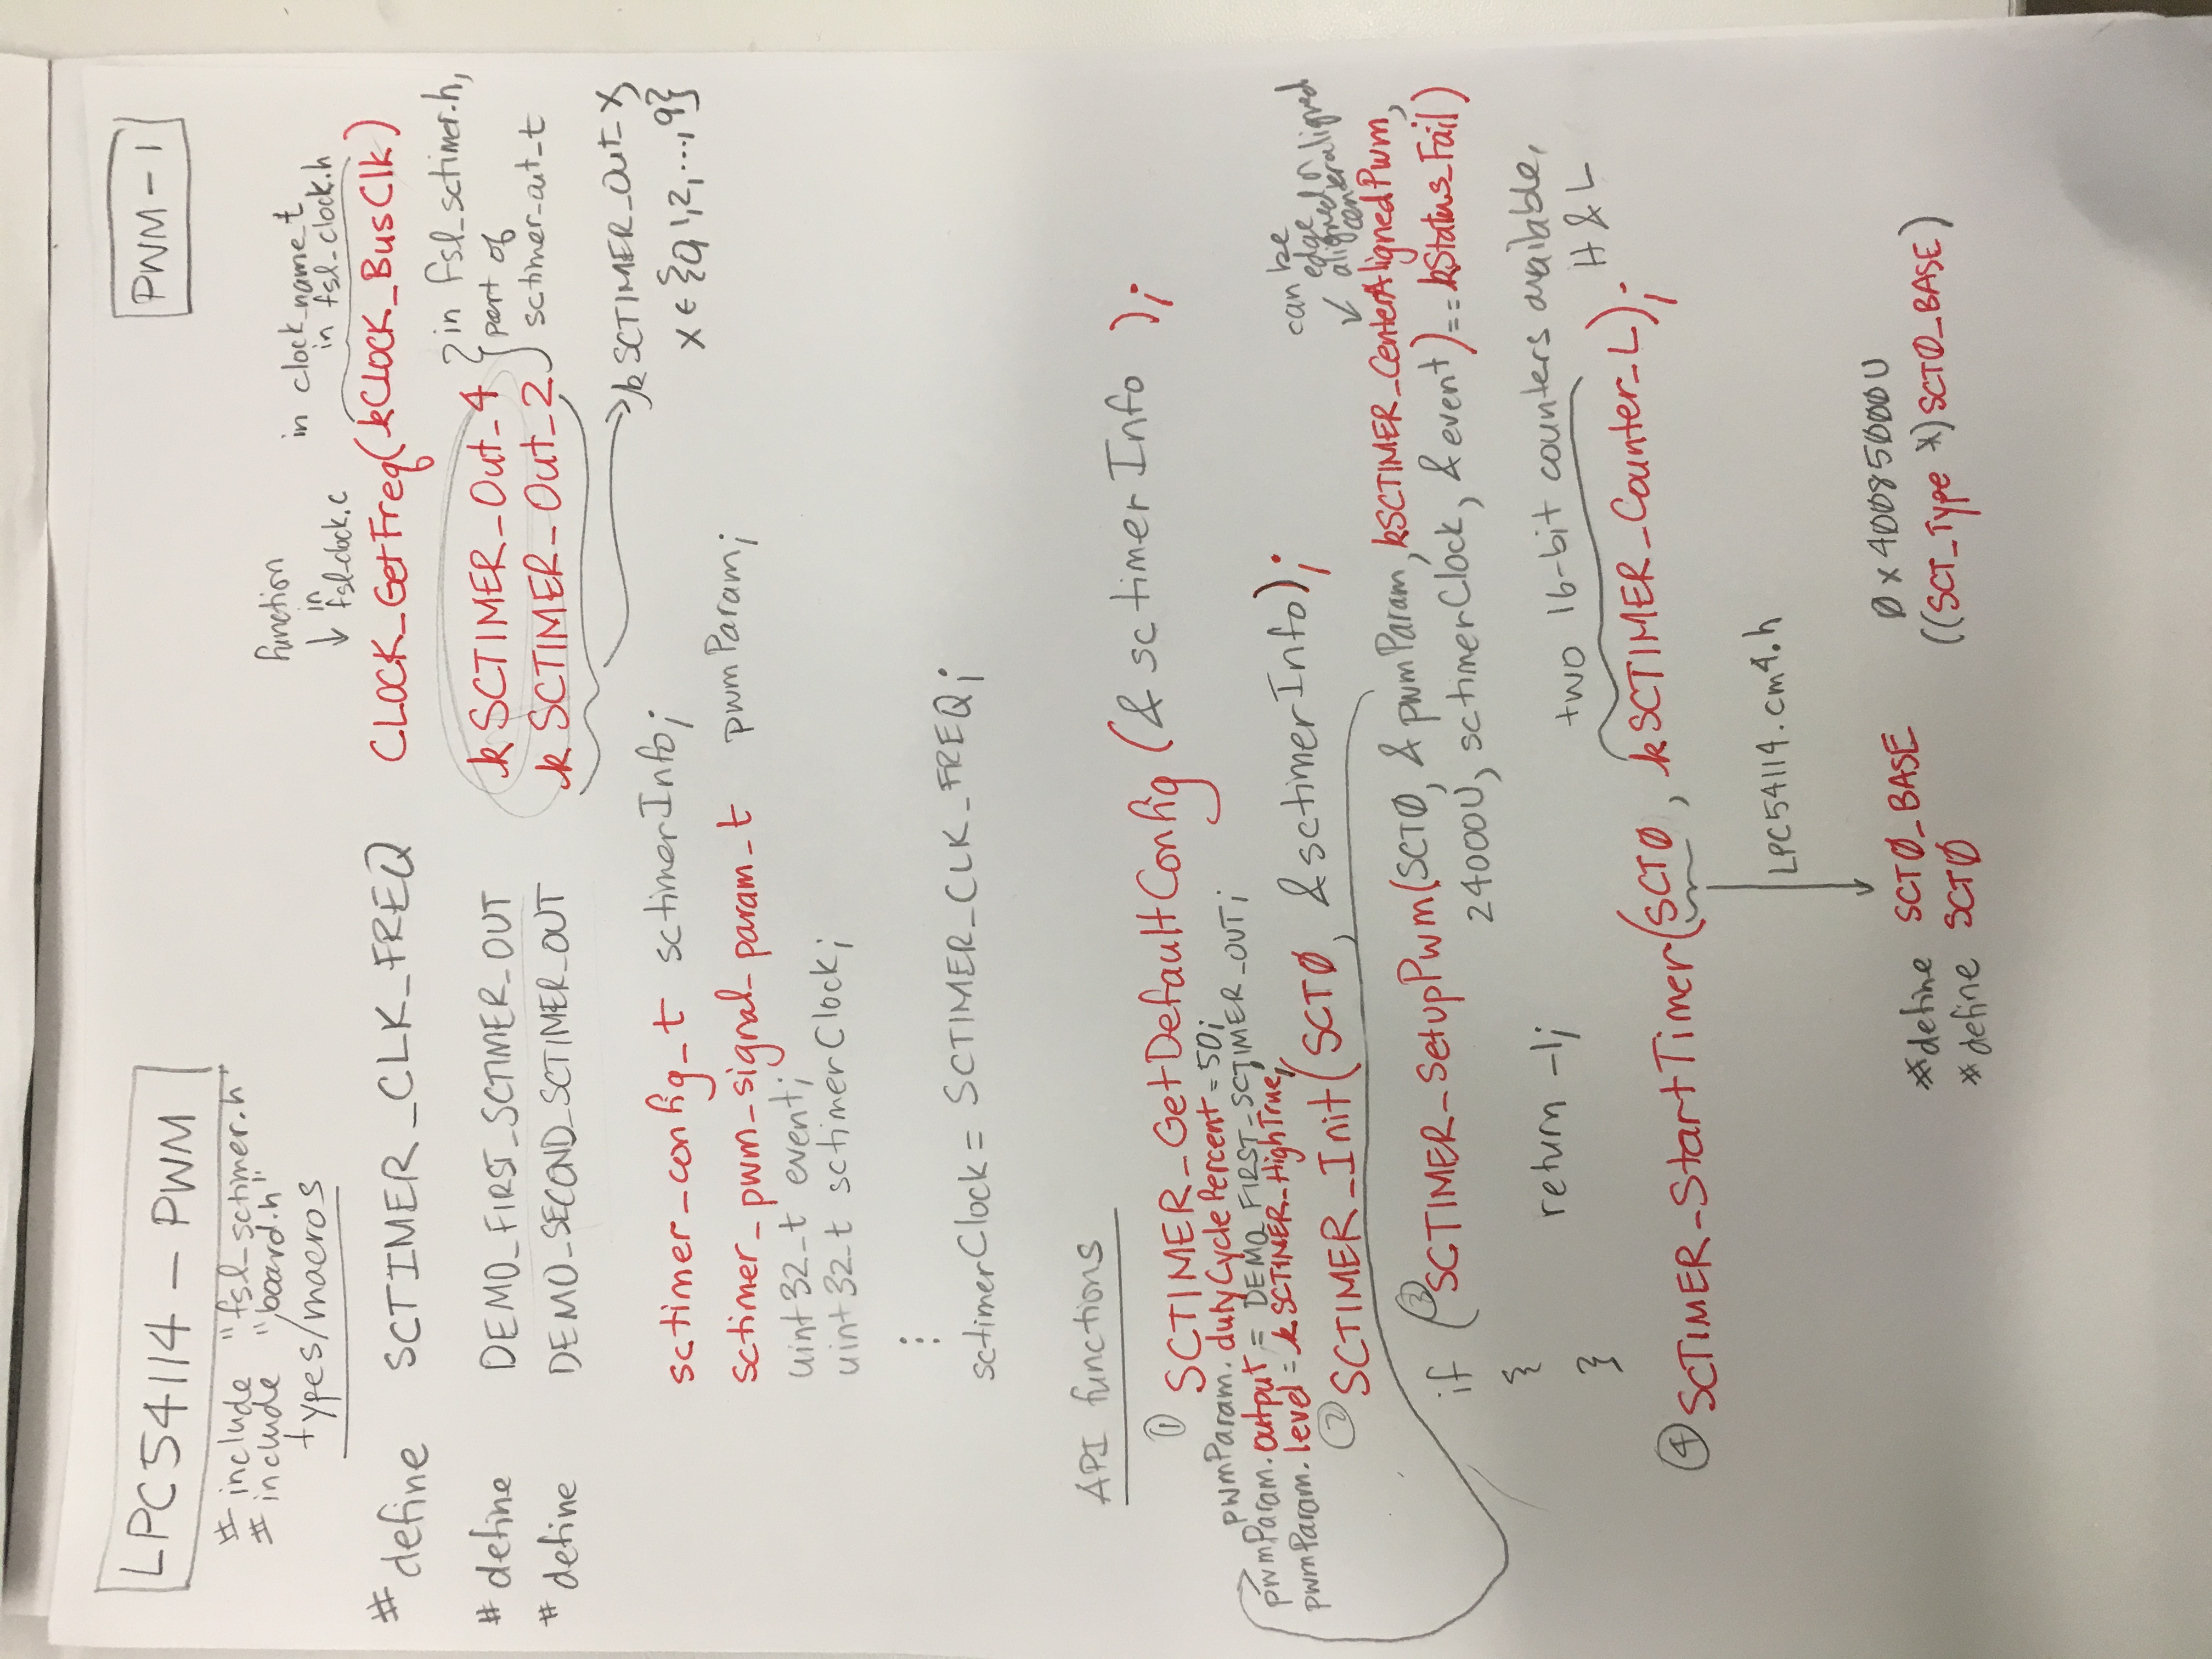 LPC54114 – PWM
PWM – 1
# include "fsl_sctimer.h"
# include "board.h"
types/macros
function
↓ in
fsl_clock.c
in clock_name_t
in fsl_clock.h
# define SCTIMER_CLK_FREQ CLOCK_GetFreq(kCLOCK_BusClk)
# define DEMO_FIRST_SCTIMER_OUT kSCTIMER_Out_4
# define DEMO_SECOND_SCTIMER_OUT kSCTIMER_Out_2
} in fsl_sctimer.h,
part of
sctimer_out_t
kSCTIMER_Out_X,
X ∈ {0,1,2,...,9}
sctimer_config_t sctimerInfo;
sctimer_pwm_signal_param_t pwmParam;
uint32_t event;
uint32_t sctimerClock;
⋮
sctimerClock = SCTIMER_CLK_FREQ;
API functions
① SCTIMER_GetDefaultConfig (& sctimerInfo );
pwmParam. dutyCyclePercent = 50;
pwmParam. output = DEMO_FIRST_SCTIMER_OUT;
pwmParam. level = kSCTIMER_HighTrue;
② SCTIMER_Init(SCT0, &sctimerInfo);
can be
edge
aligned or
center aligned
if ( ③ SCTIMER_SetupPwm(SCT0, & pwmParam, kSCTIMER_CenterAlignedPwm,
24000U, sctimerClock, &event) == kStatus_Fail)
{
return -1;
}
two 16-bit counters available,
H & L
④ SCTIMER_StartTimer(SCT0, kSCTIMER_Counter_L);
LPC54114.cm4.h
#define SCT0_BASE 0x40085000U
#define SCT0 ((SCT_Type *)SCT0_BASE)